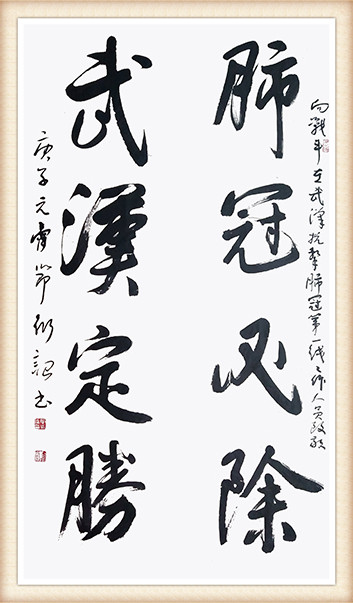 向戰斗在武漢抗擊肺冠第一线工作人员致敬
肺冠必除
武漢定勝
庚子元宵節書